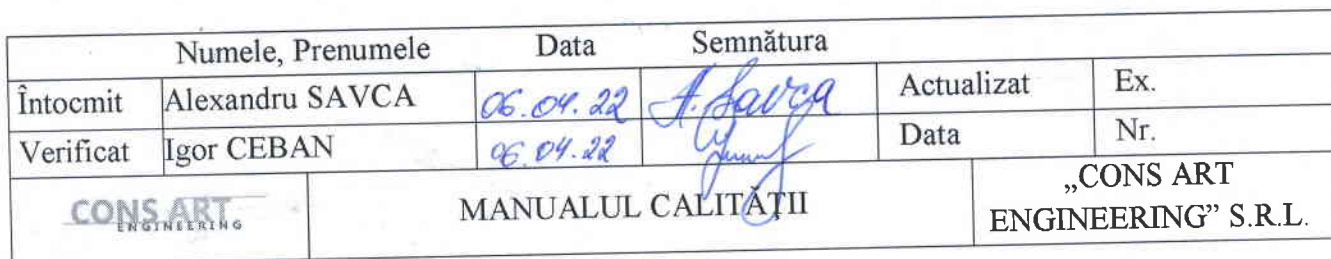 Numele, Prenumele Data Semnătura
Întocmit Alexandru SAVCA 06.04.22 A. Savca Actualizat Ex.
Verificat Igor CEBAN 06.04.22 Data Nr.
CONS ART ENGINEERING MANUALUL CALITĂȚII „CONS ART
ENGINEERING” S.R.L.